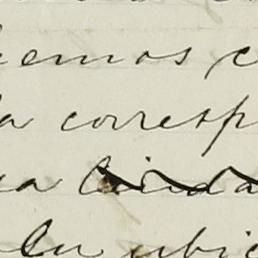 emos c
a corresp
a
En ubic